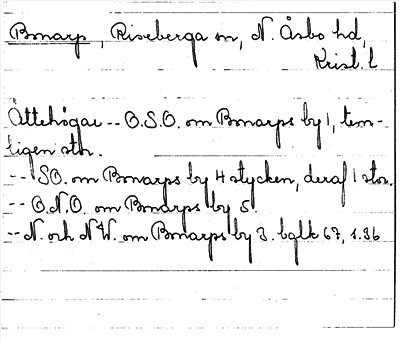 Bonarp, Riseberga sn, N. Åsbo hd,
Krist. l
Ättehögar -- O.S.O. om Bonarps by 1, tem-
ligen stor.
-- SO. om Bonarps by 4 stycken, deraf 1 stor.
-- O.N.O. om Bonarps by 5.
-- N. och N.W. om Bonarps by 3. 67, 1.36